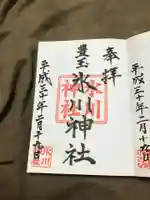 平成三十年二月十九日
奉拝
豊玉
氷川神社
氷川
神社
平成三十年二月十九日